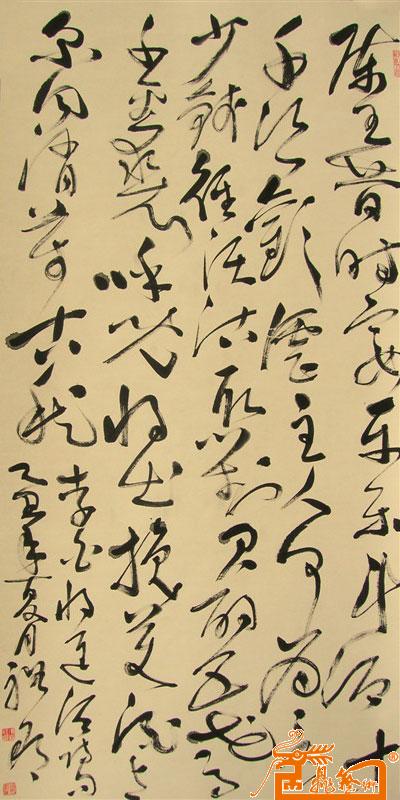 陈王昔时宴平乐斗酒十
千恣欢谑主人何为言
少钱径须沽取对君酌五花马
千金裘呼儿将出换美酒与
尔同消万古愁
李白将进酒诗句
乙丑年夏月